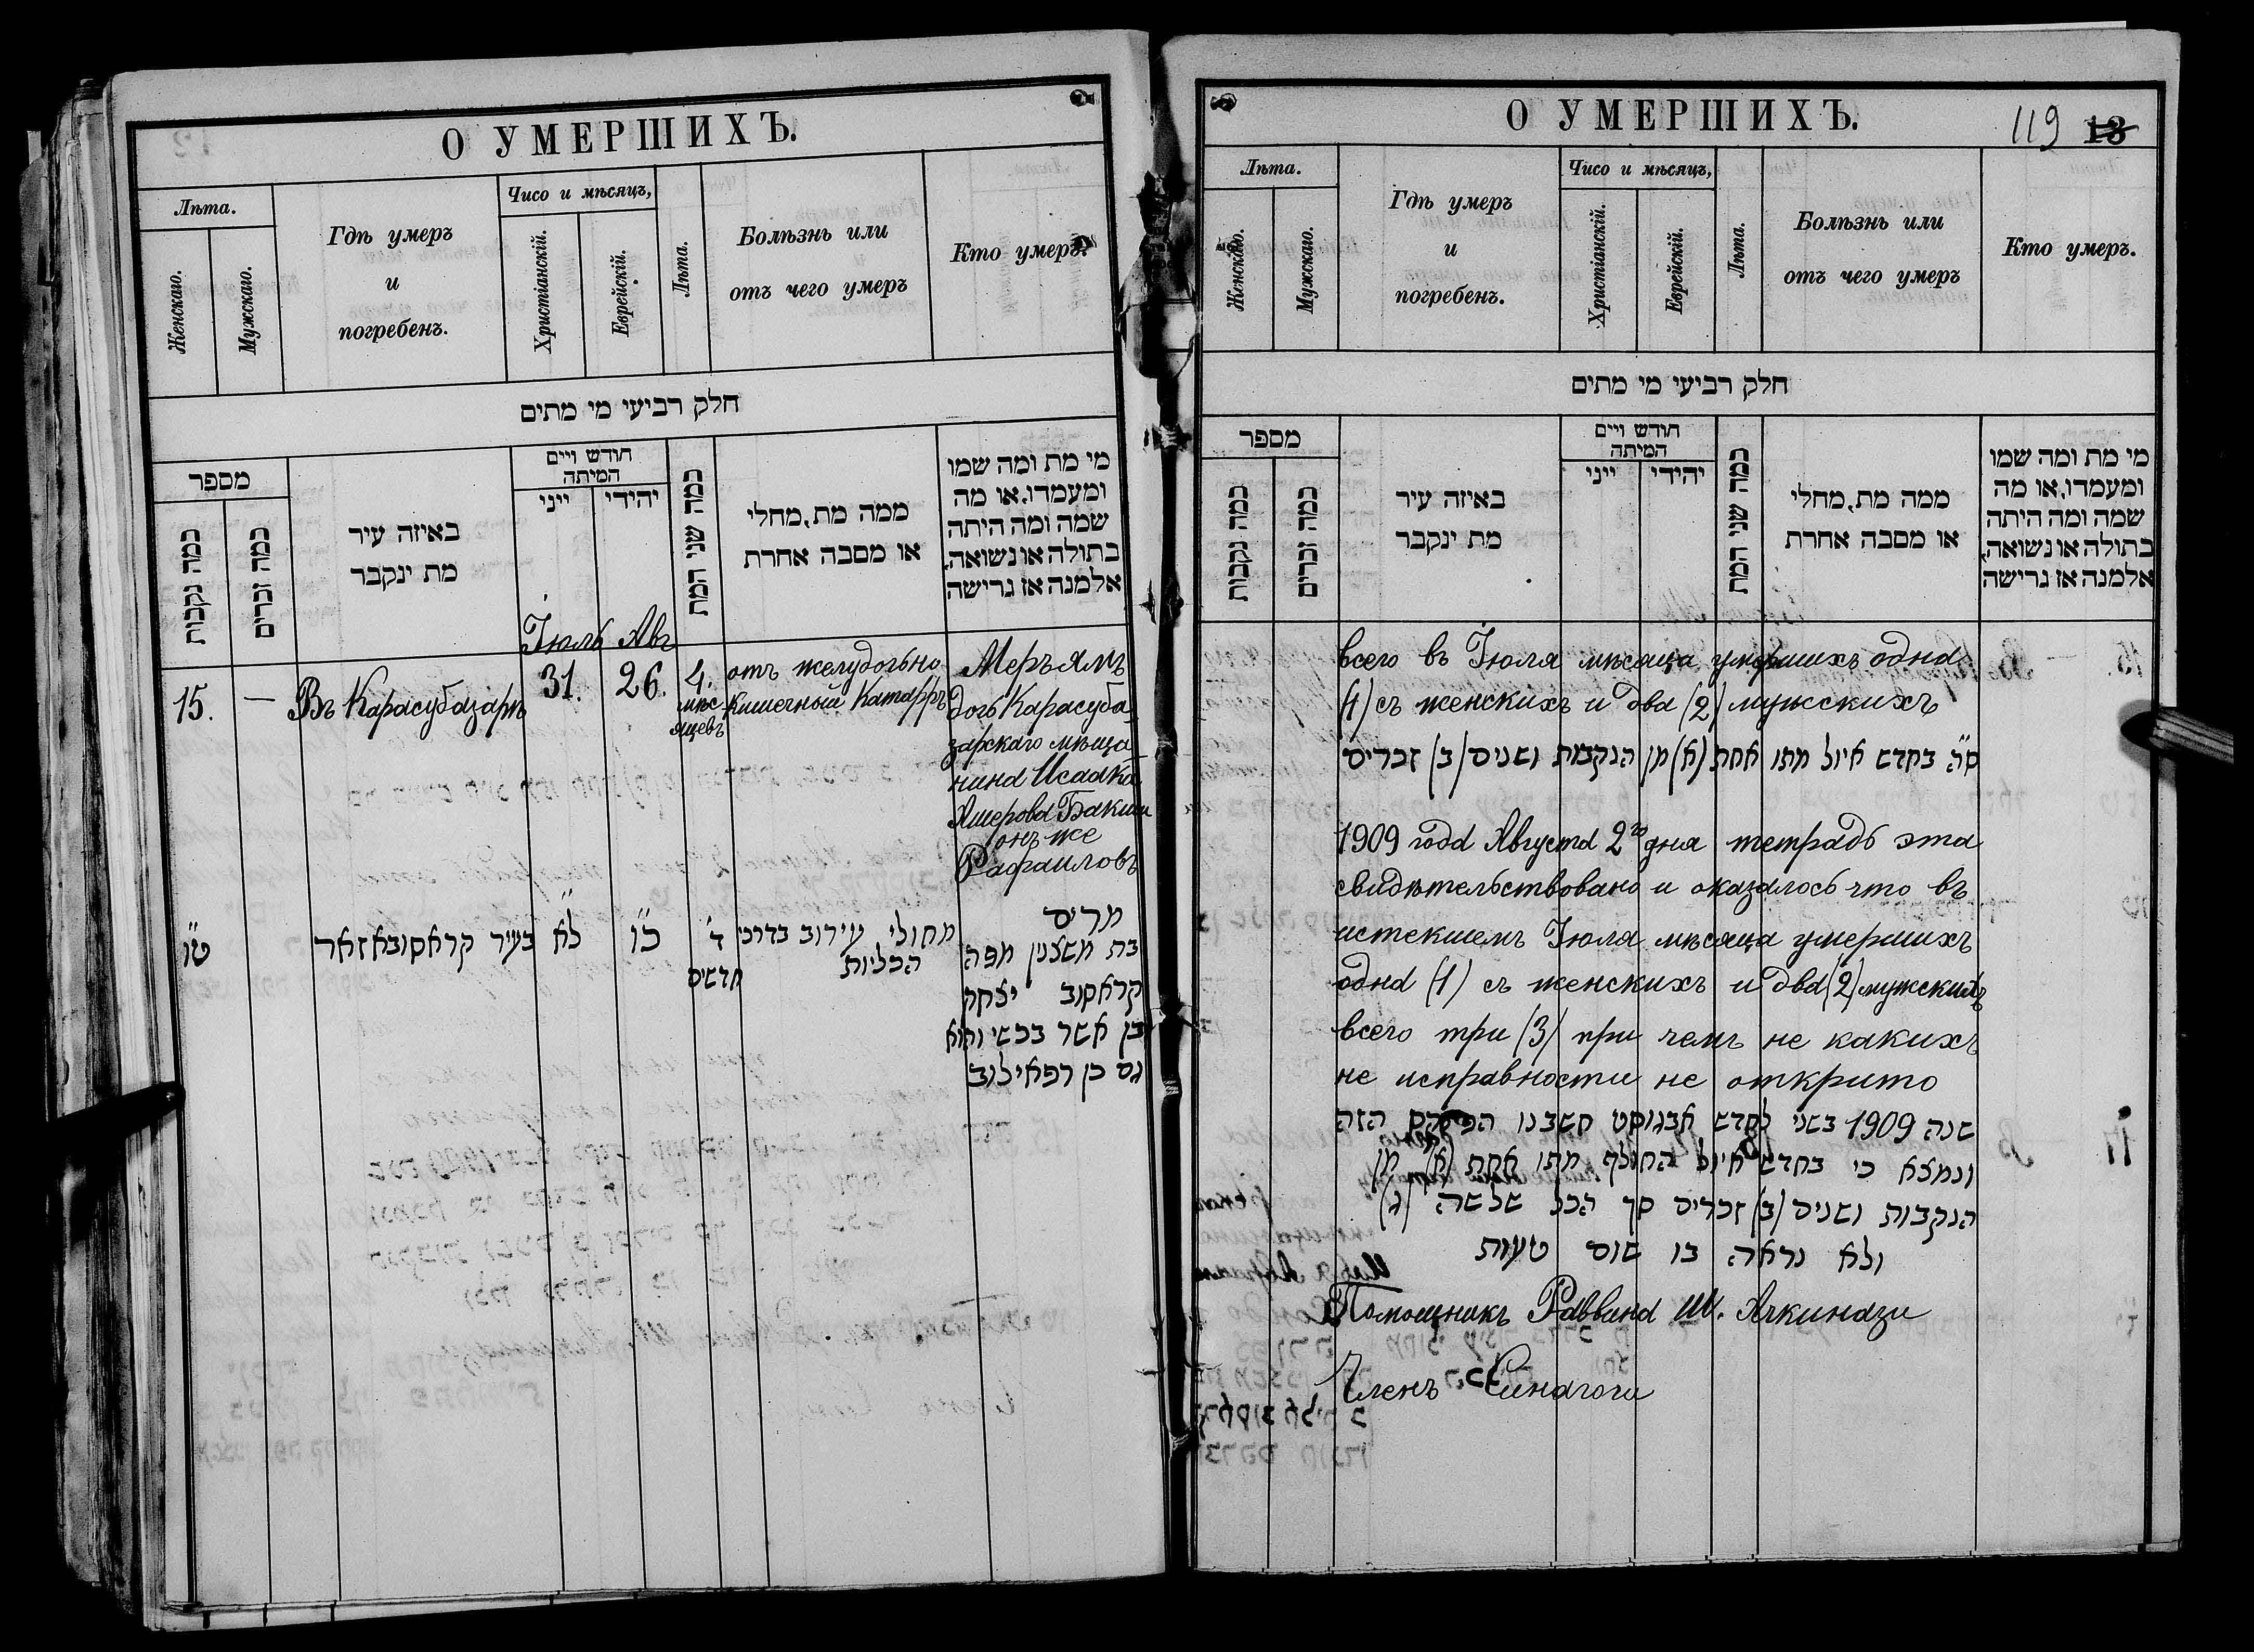 О УМЕРШИХЪ.
Лѣта.
Женскаго.
Мужскаго.
Гдѣ умеръ
и
погребенъ.
Чисо и мѣсяцъ,
Христіанскій.
Еврейскій.
Лѣта.
Болѣзнь или
отъ чего умеръ
Кто умеръ.
חלק רביעי מי מתים
מספר
כמה נקבות
כמה זכרים
באיזה עיר
מת ינקבר
חודש ויים
המיתה
ייני
יהידי
כמה שני המת
ממה מת, מחלי
או מסבה אחרת
מי מת ומה שמו
ומעמדו, או מה
שמה ומה היתה
בתולה או נשואה,
אלמנה אז גרישה
Іюль Авъ
15.
—
Въ Карасубазарѣ
31.
26.
4.
мѣс-
яцевъ
отъ желудочьно
кишечный Катарръ
Меръямъ
дочь Карасуба
зарскаго мѣща
нина Исаака
Ашерова Бакши
онъ же
Рафаиловъ
ט״ו
בעיר קראסובאזאר
ל״א
כ״ו
ד׳
חדשים
מחולי עירוב בדרכי
הכליות
מרים
בת משצנין מפה
קראסוב יצחק
בן אשר בכשי והוא
גם כן רפאילוב
О УМЕРШИХЪ.
119 13
Лѣта.
Женскаго.
Мужскаго.
Гдѣ умеръ
и
погребенъ.
Чисо и мѣсяцъ,
Христіанскій.
Еврейскій.
Лѣта.
Болѣзнь или
отъ чего умеръ
Кто умеръ.
חלק רביעי מי מתים
מספר
כמה נקבות
כמה זכרים
באיזה עיר
מת ינקבר
חודש ויים
המיתה
ייני
יהידי
כמה שני המת
ממה מת, מחלי
או מסבה אחרת
מי מת ומה שמו
ומעמדו, או מה
שמה ומה היתה
בתולה או נשואה,
אלמנה אז גרישה
всего въ Іюля мѣсяца умершихъ одна
(1) съ женскихъ и два (2) мужскихъ
ס״ה בחדש איול מתו אחת (א) מן הנקבות ושנים (ב) זכרים
1909 года Августа 2го дня тетрадь эта
свидѣтельствовано и оказалось что въ
истекшемъ Іюля мѣсяца умершихъ
одна (1) съ женскихъ и два (2) мужскихъ
всего три (3) при чемъ не какихъ
не исправности не открито
שנה 1909 בשני לחדש אבגוסט חשבנו הפנקס הזה
ונמצא כי בחדש איול החולף מתו אחת (א) מן
הנקבות ושנים (ב) זכרים סך הכל שלשה (ג)
ולא נראה בו שום טעות
Помощникъ Раввина Ш. Ачкинази
Членъ Синагоги